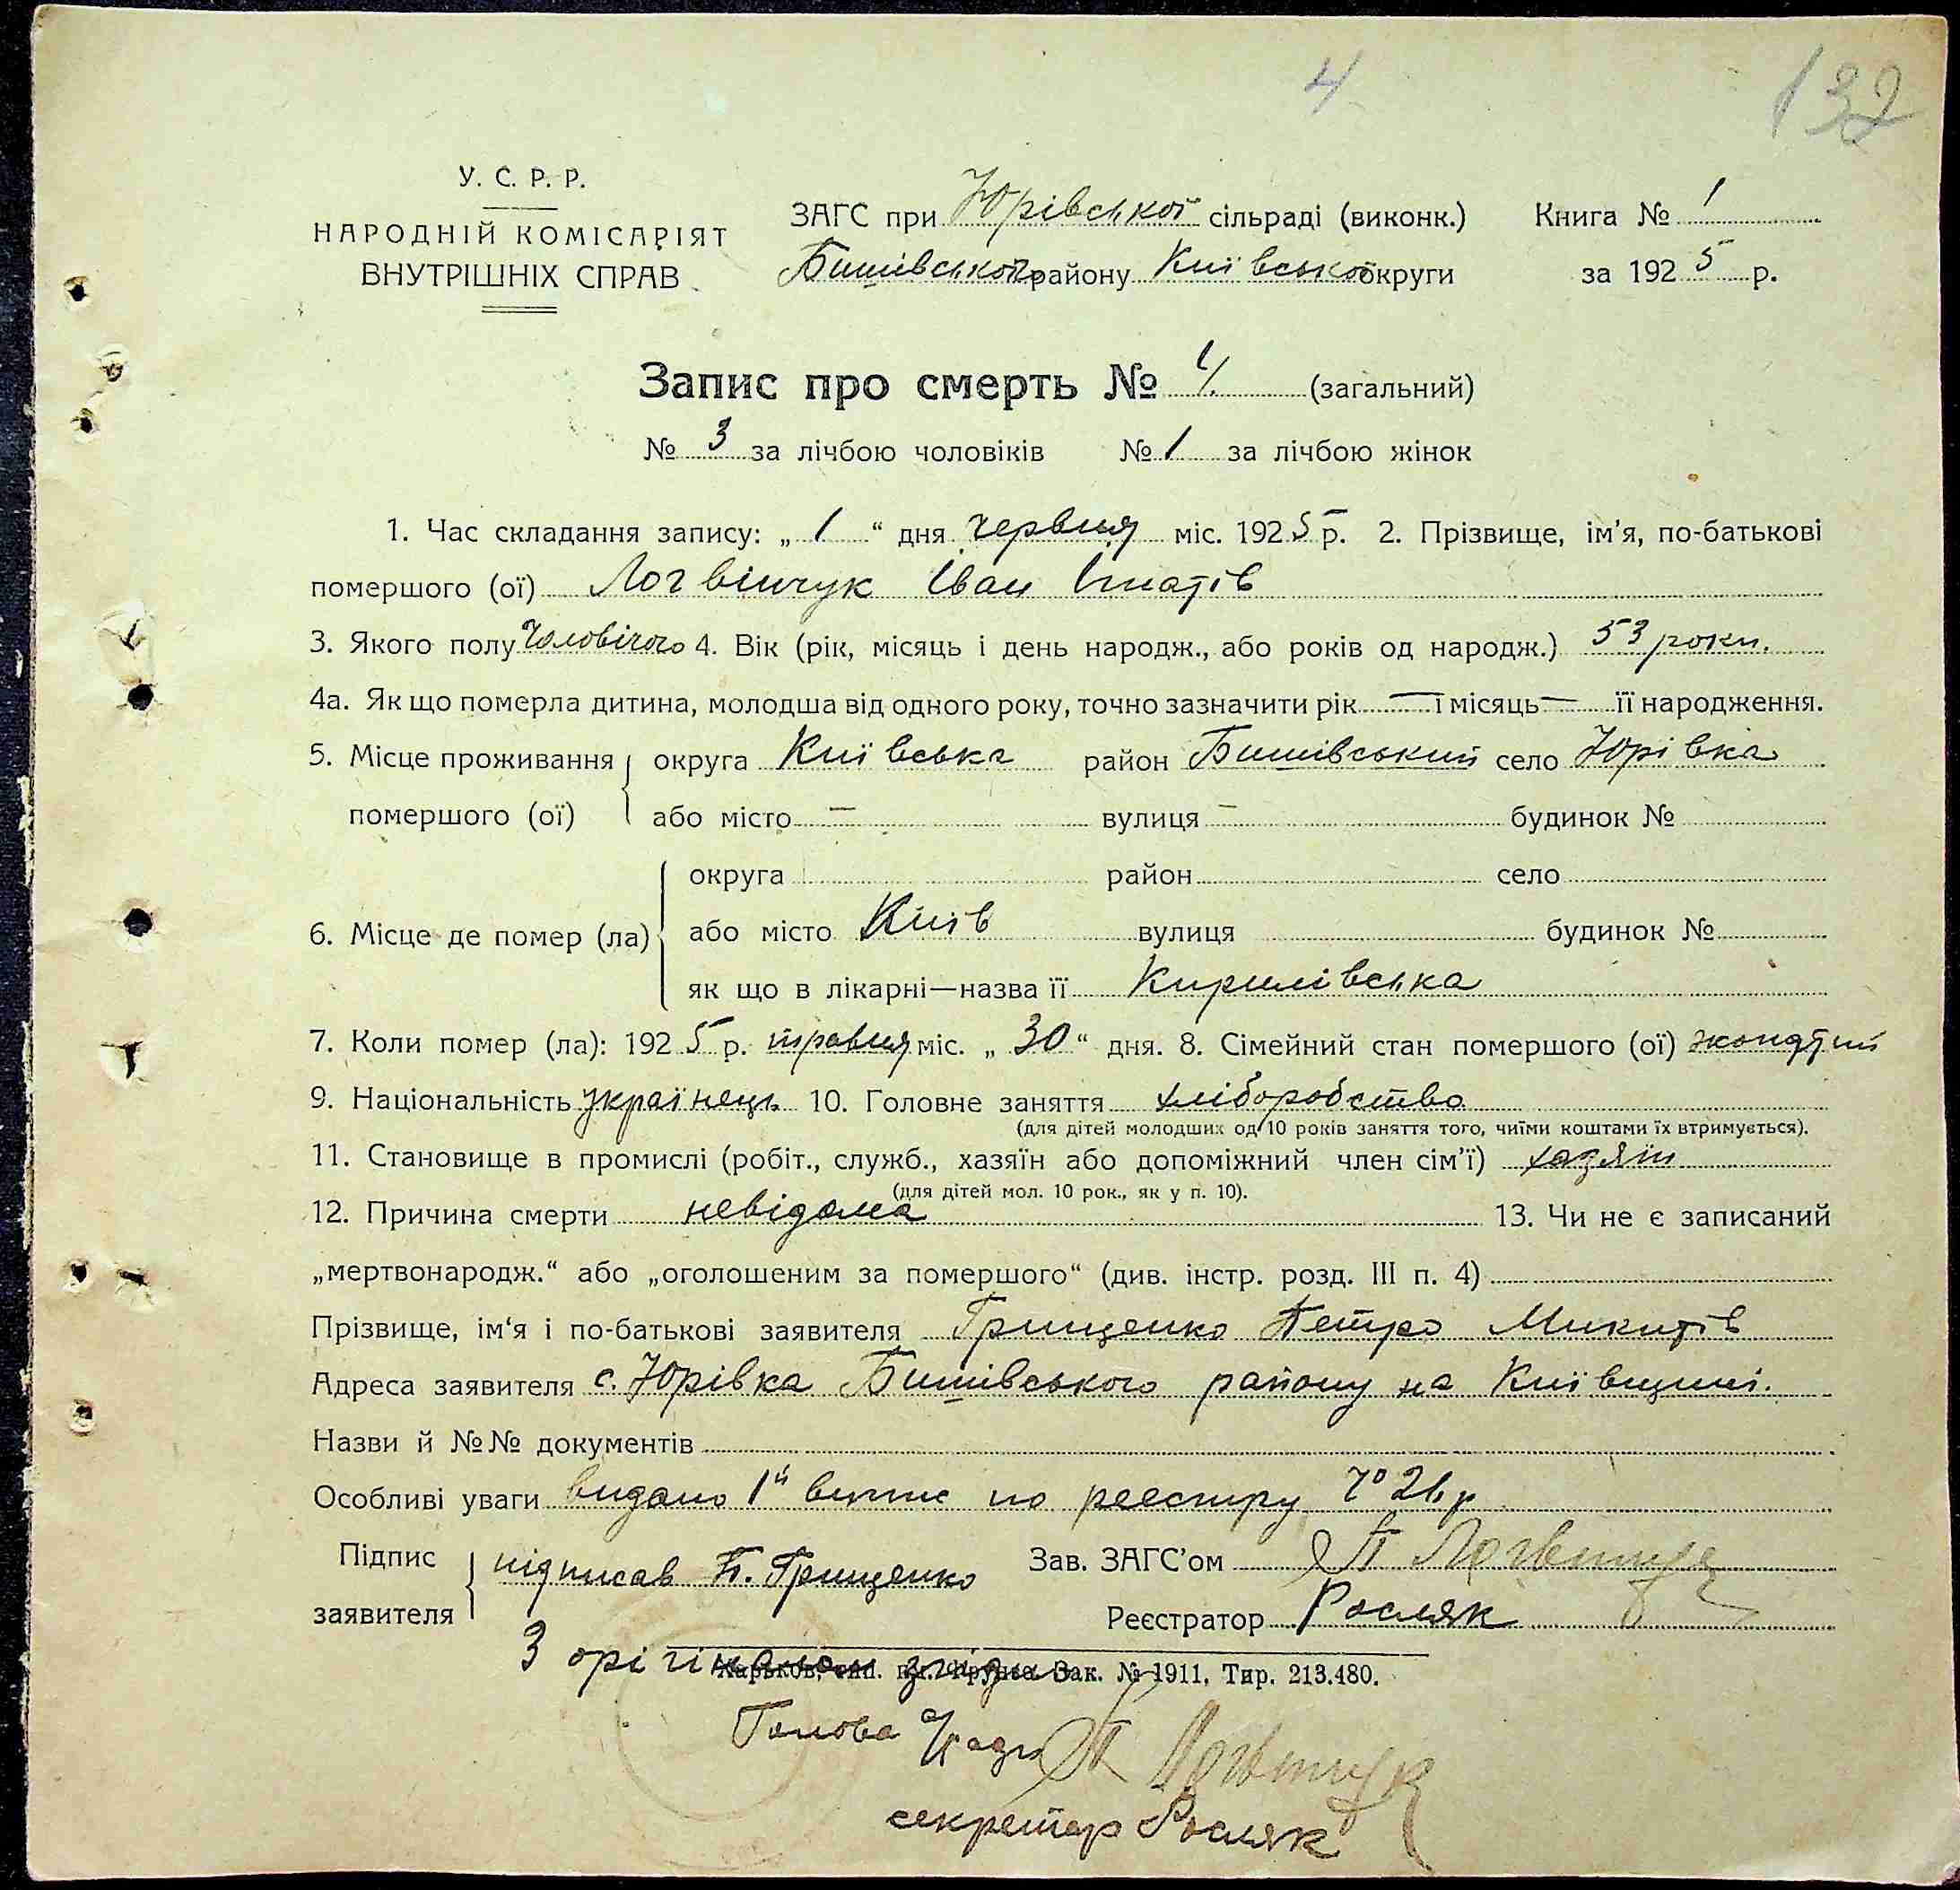 4
132
У. С. Р. Р.
НАРОДНІЙ КОМІСАРІЯТ
ВНУТРІШНІХ СПРАВ
ЗАГС при Юрівській сільраді (виконк.) Книга № 1
Бишівського району Київської округи за 1925 р.
Запис про смерть № 4. (загальний)
№ 3 за лічбою чоловіків № 1 за лічбою жінок
1. Час складання запису: „ 1 “ дня червня міс. 1925 р. 2. Прізвище, ім'я, по-батькові
помершого (ої) Логвінчук Іван Ігнатів
3. Якого полу Чоловічого 4. Вік (рік, місяць і день народж., або років од народж.) 53 роки.
4а. Як що померла дитина, молодша від одного року, точно зазначити рік — і місяць — її народження.
5. Місце проживання округа Київська район Бишівський село Юрівка
помершого (ої) або місто — вулиця — будинок №
округа район село
6. Місце де помер (ла) або місто Київ вулиця будинок №
як що в лікарні—назва її Кирилівська
7. Коли помер (ла): 1925 р. травня міс. „ 30 “ дня. 8. Сімейний стан помершого (ої) жонатий
9. Національність українець 10. Головне заняття хліборобство
(для дітей молодших од 10 років заняття того, чиїми коштами їх втримується).
11. Становище в промислі (робіт., служб., хазяїн або допоміжний член сім'ї) хазяїн
(для дітей мол. 10 рок., як у п. 10).
12. Причина смерти невідома 13. Чи не є записаний
„мертвонародж.“ або „оголошеним за помершого“ (див. інстр. розд. III п. 4)
Прізвище, ім'я і по-батькові заявителя Грищенко Петро Микитів
Адреса заявителя с. Юрівка Бишівського району на Київщині.
Назви й №№ документів
Особливі уваги видано 1й випис по реестру
Підпис заявителя підписав П. Грищенко Зав. ЗАГС'ом П Логвинчук
Реєстратор Росляк
З орігіналом згідно
Харьков, тип. им. Фрунзе Зак. № 1911, Тир. 213.480.
Голова П Логвинчук
секретар Росляк